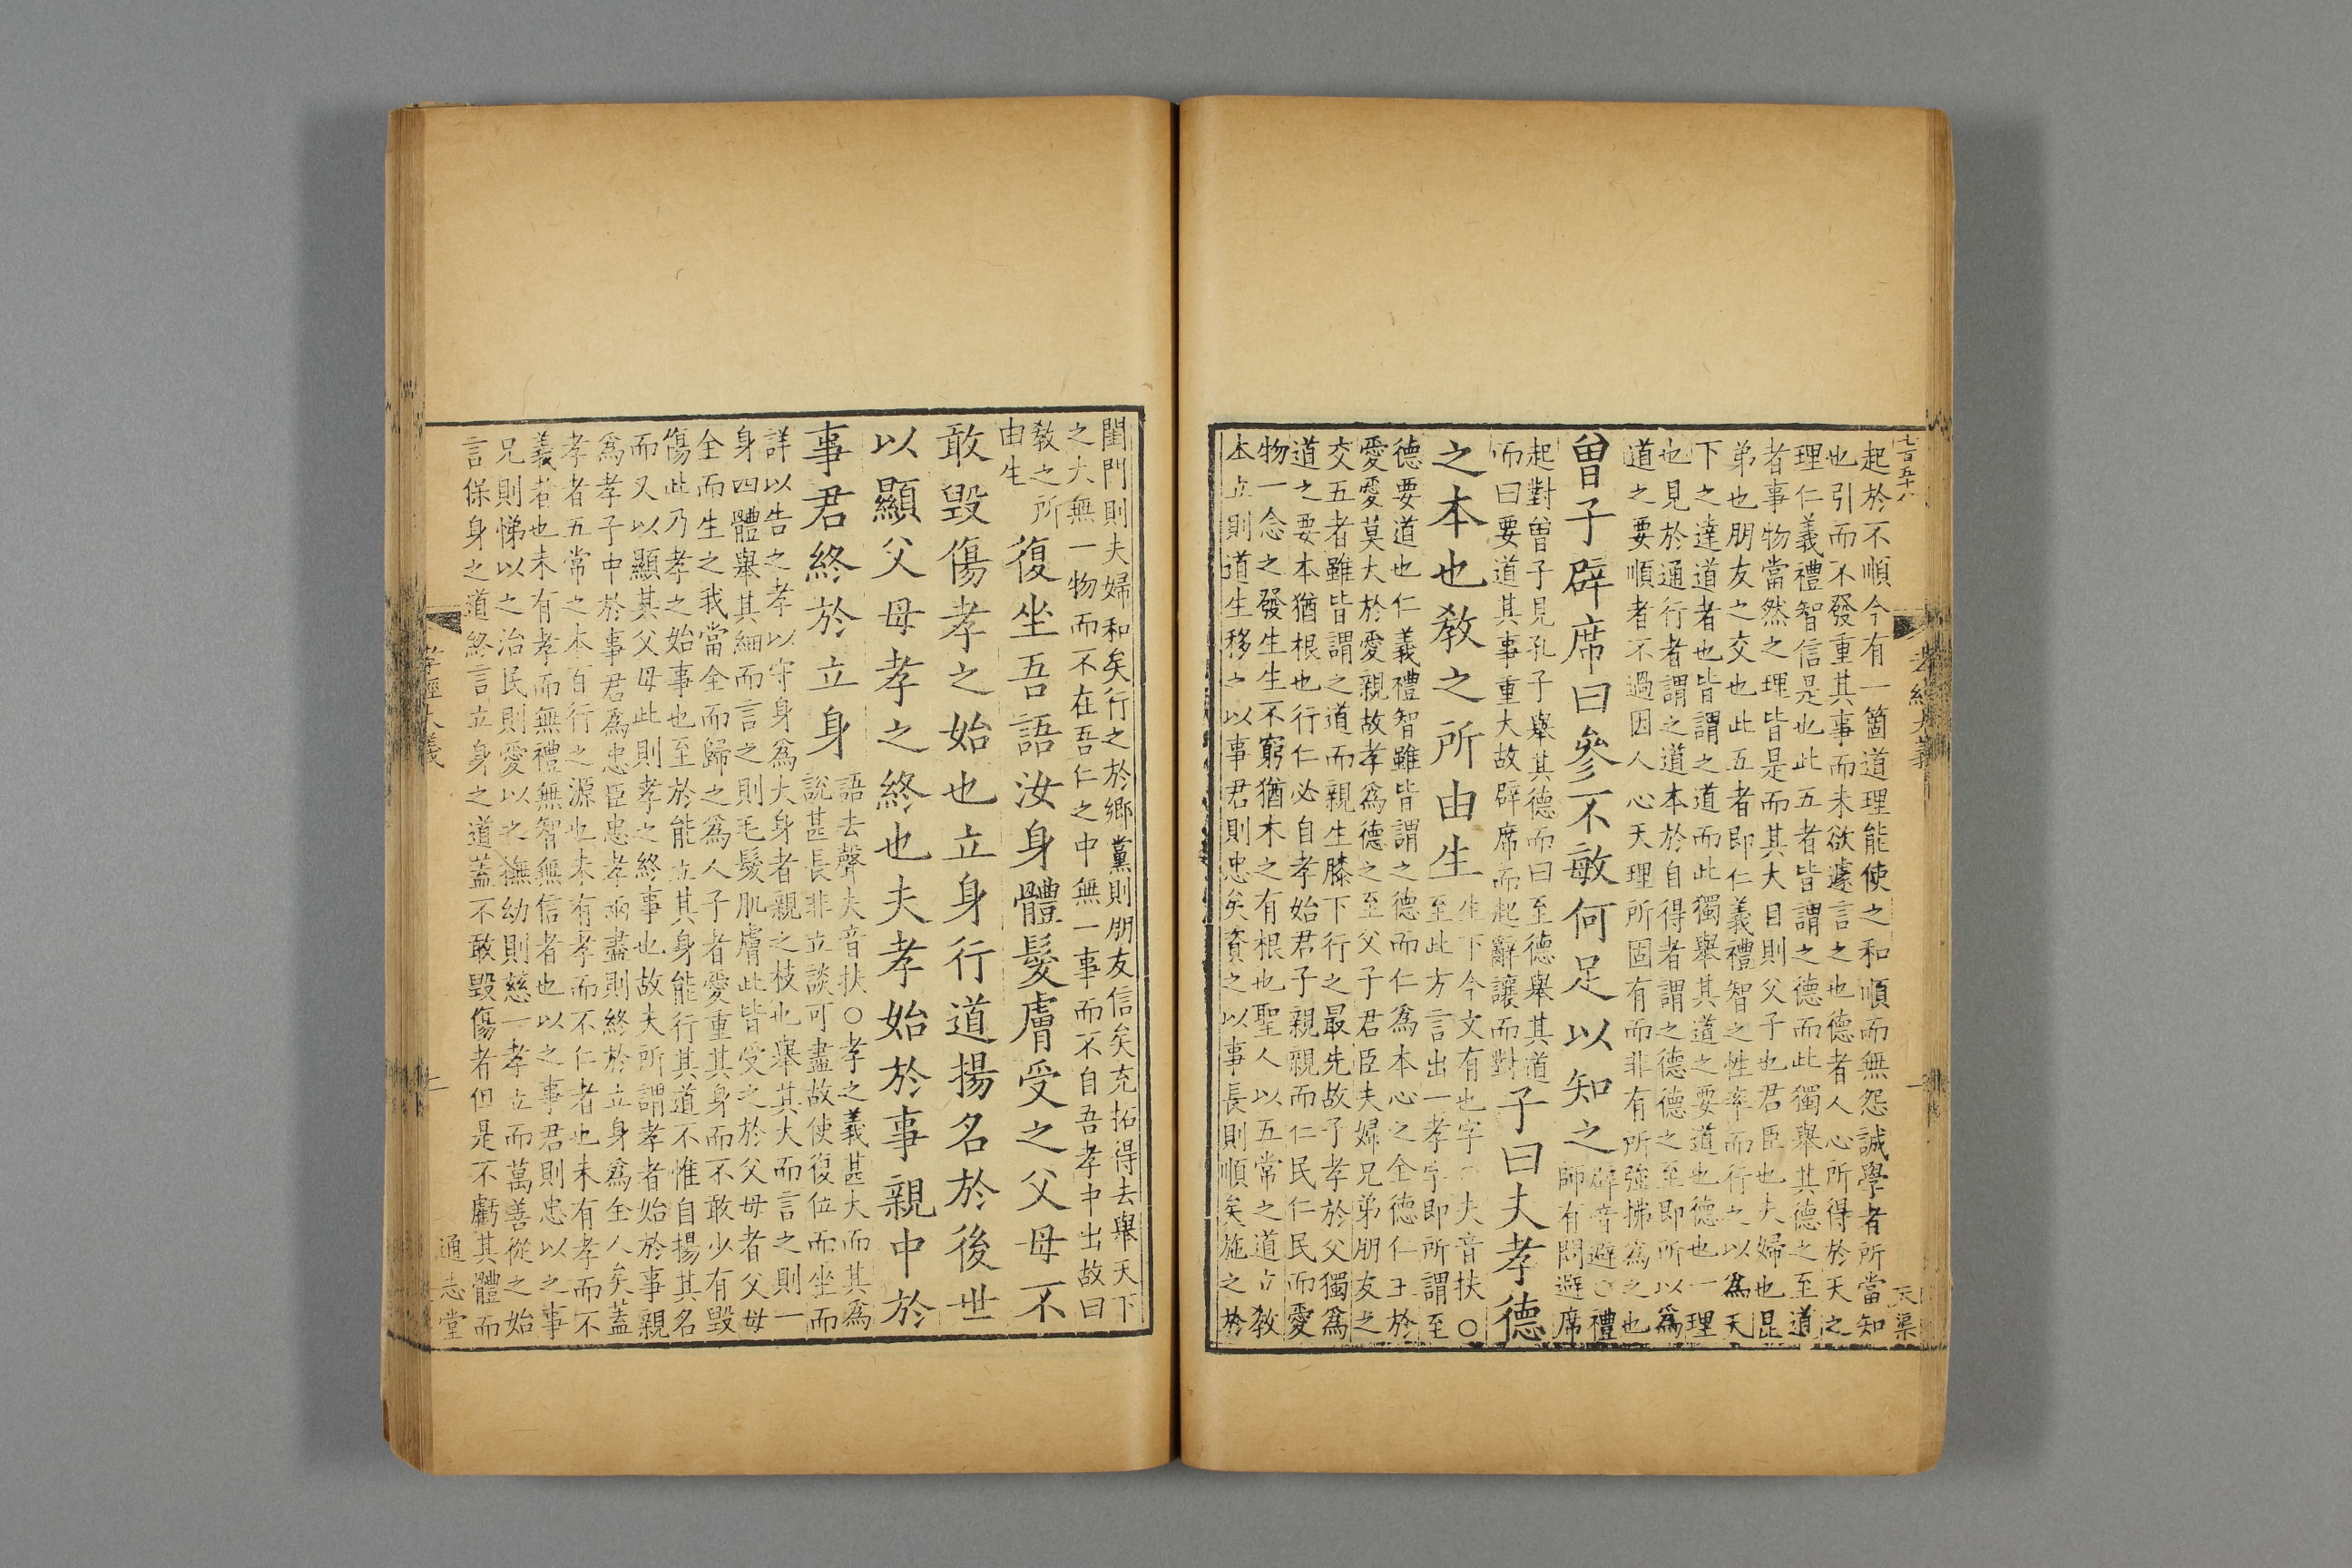 七百五十八
孝經大義
一
天渠
起於不順今有一箇道理能使之和順而無怨誠學者所當知
也引而不發重其事而未欲遽言之也德者人心所得於天之
理仁義禮智信是也此五者皆謂之德而此獨舉其德之至道
者事物當然之理皆是而其大目則父子也君臣也夫婦也昆
弟也朋友之交也此五者即仁義禮智之性率而行之以爲天
下之達道者也皆謂之道而此獨舉其道之要道也德也一理
也見於通行者謂之道本於自得者謂之德德之至即所以爲
道之要順者不過因人心天理所固有而非有所強拂爲之也
曾子辟席曰參不敏何足以知之
辟音避○禮
師有問避席
起對曾子見孔子舉其德而曰至德舉其道
而曰要道其事重大故辟席而起辭讓而對
子曰夫孝德
之本也敎之所由生
生下今文有也字○夫音扶○
至此方言出一孝字即所謂至
德要道也仁義禮智雖皆謂之德而仁爲本心之全德仁主於
愛愛莫大於愛親故孝爲德之至父子君臣夫婦兄弟朋友之
交五者雖皆謂之道而親生膝下行之最先故子孝於父獨爲
道之要本猶根也行仁必自孝始君子親親而仁民仁民而愛
物一念之發生生不窮猶木之有根也聖人以五常之道立敎
本立則道生移之以事君則忠矣資之以事長則順矣施之於
閨門則夫婦和矣行之於鄉黨則朋友信矣充拓得去舉天下
之大無一物而不在吾仁之中無一事而不自吾孝中出故曰
敎之所
由生
復坐吾語汝身體髮膚受之父母不
敢毀傷孝之始也立身行道揚名於後世
以顯父母孝之終也夫孝始於事親中於
事君終於立身
語去聲夫音扶○孝之義甚大而其爲
說甚長非立談可盡故使復位而坐而
詳以告之孝以守身爲大身者親之枝也舉其大而言之則一
身四體舉其細而言之則毛髮肌膚此皆受之於父母者父母
全而生之我當全而歸之爲人子者愛重其身而不敢少有毀
傷此乃孝之始事也至於能立其身能行其道不惟自揚其名
而又以顯其父母此則孝之終事也故夫所謂孝者始於事親
爲孝子中於事君爲忠臣忠孝兩盡則終於立身爲全人矣蓋
孝者五常之本百行之源也未有孝而不仁者也未有孝而不
義者也未有孝而無禮無智無信者也以之事君則忠以之事
兄則悌以之治民則愛以之撫幼則慈一孝立而萬善從之始
言保身之道終言立身之道蓋不敢毀傷者但是不虧其體而
孝經大義
二
通志堂